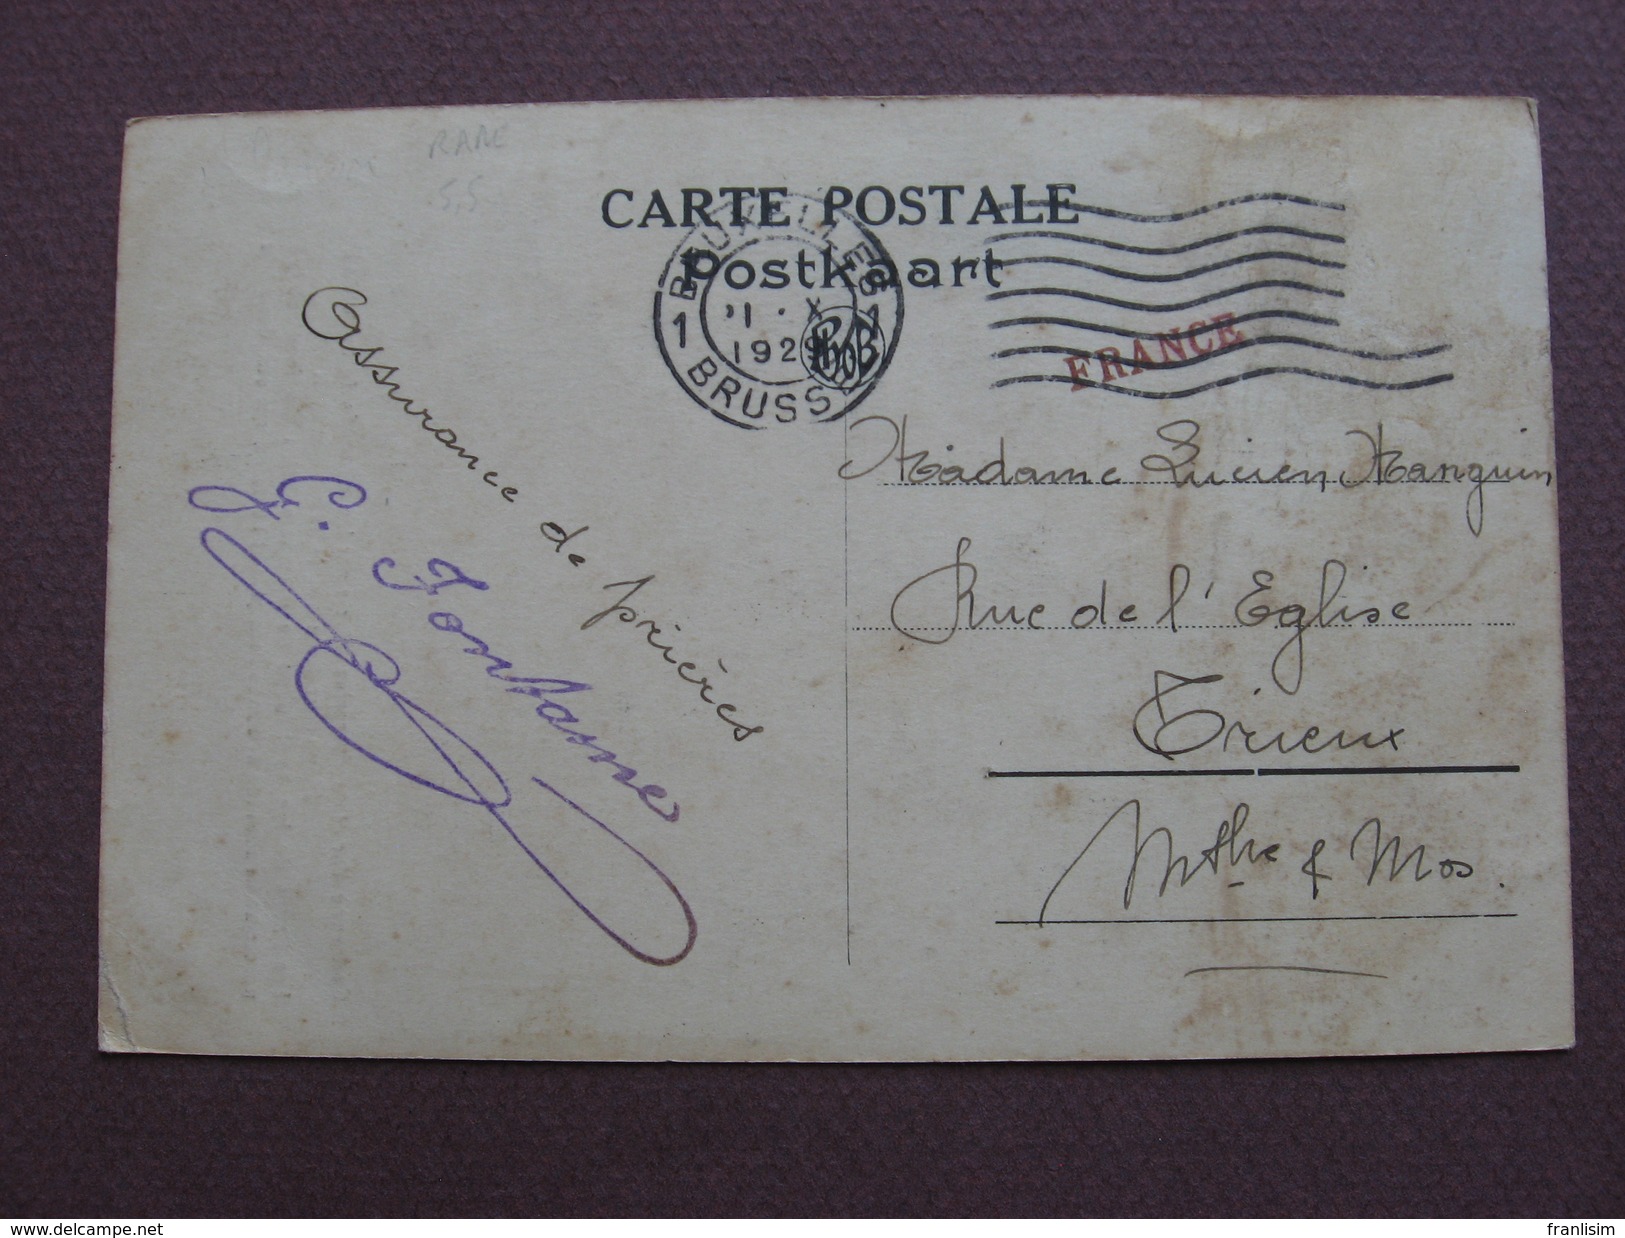 RARE
5.5
CARTE POSTALE
Postkaart
BRUXELLES
1 1
1 · X
1929
BRUSSEL
FRANCE
Assurance de prières
G. Fontaine
Madame Lucien Manguin
Rue de l'Eglise
Trieux
Mthe & Mos.
www.delcampe.net
franlisim